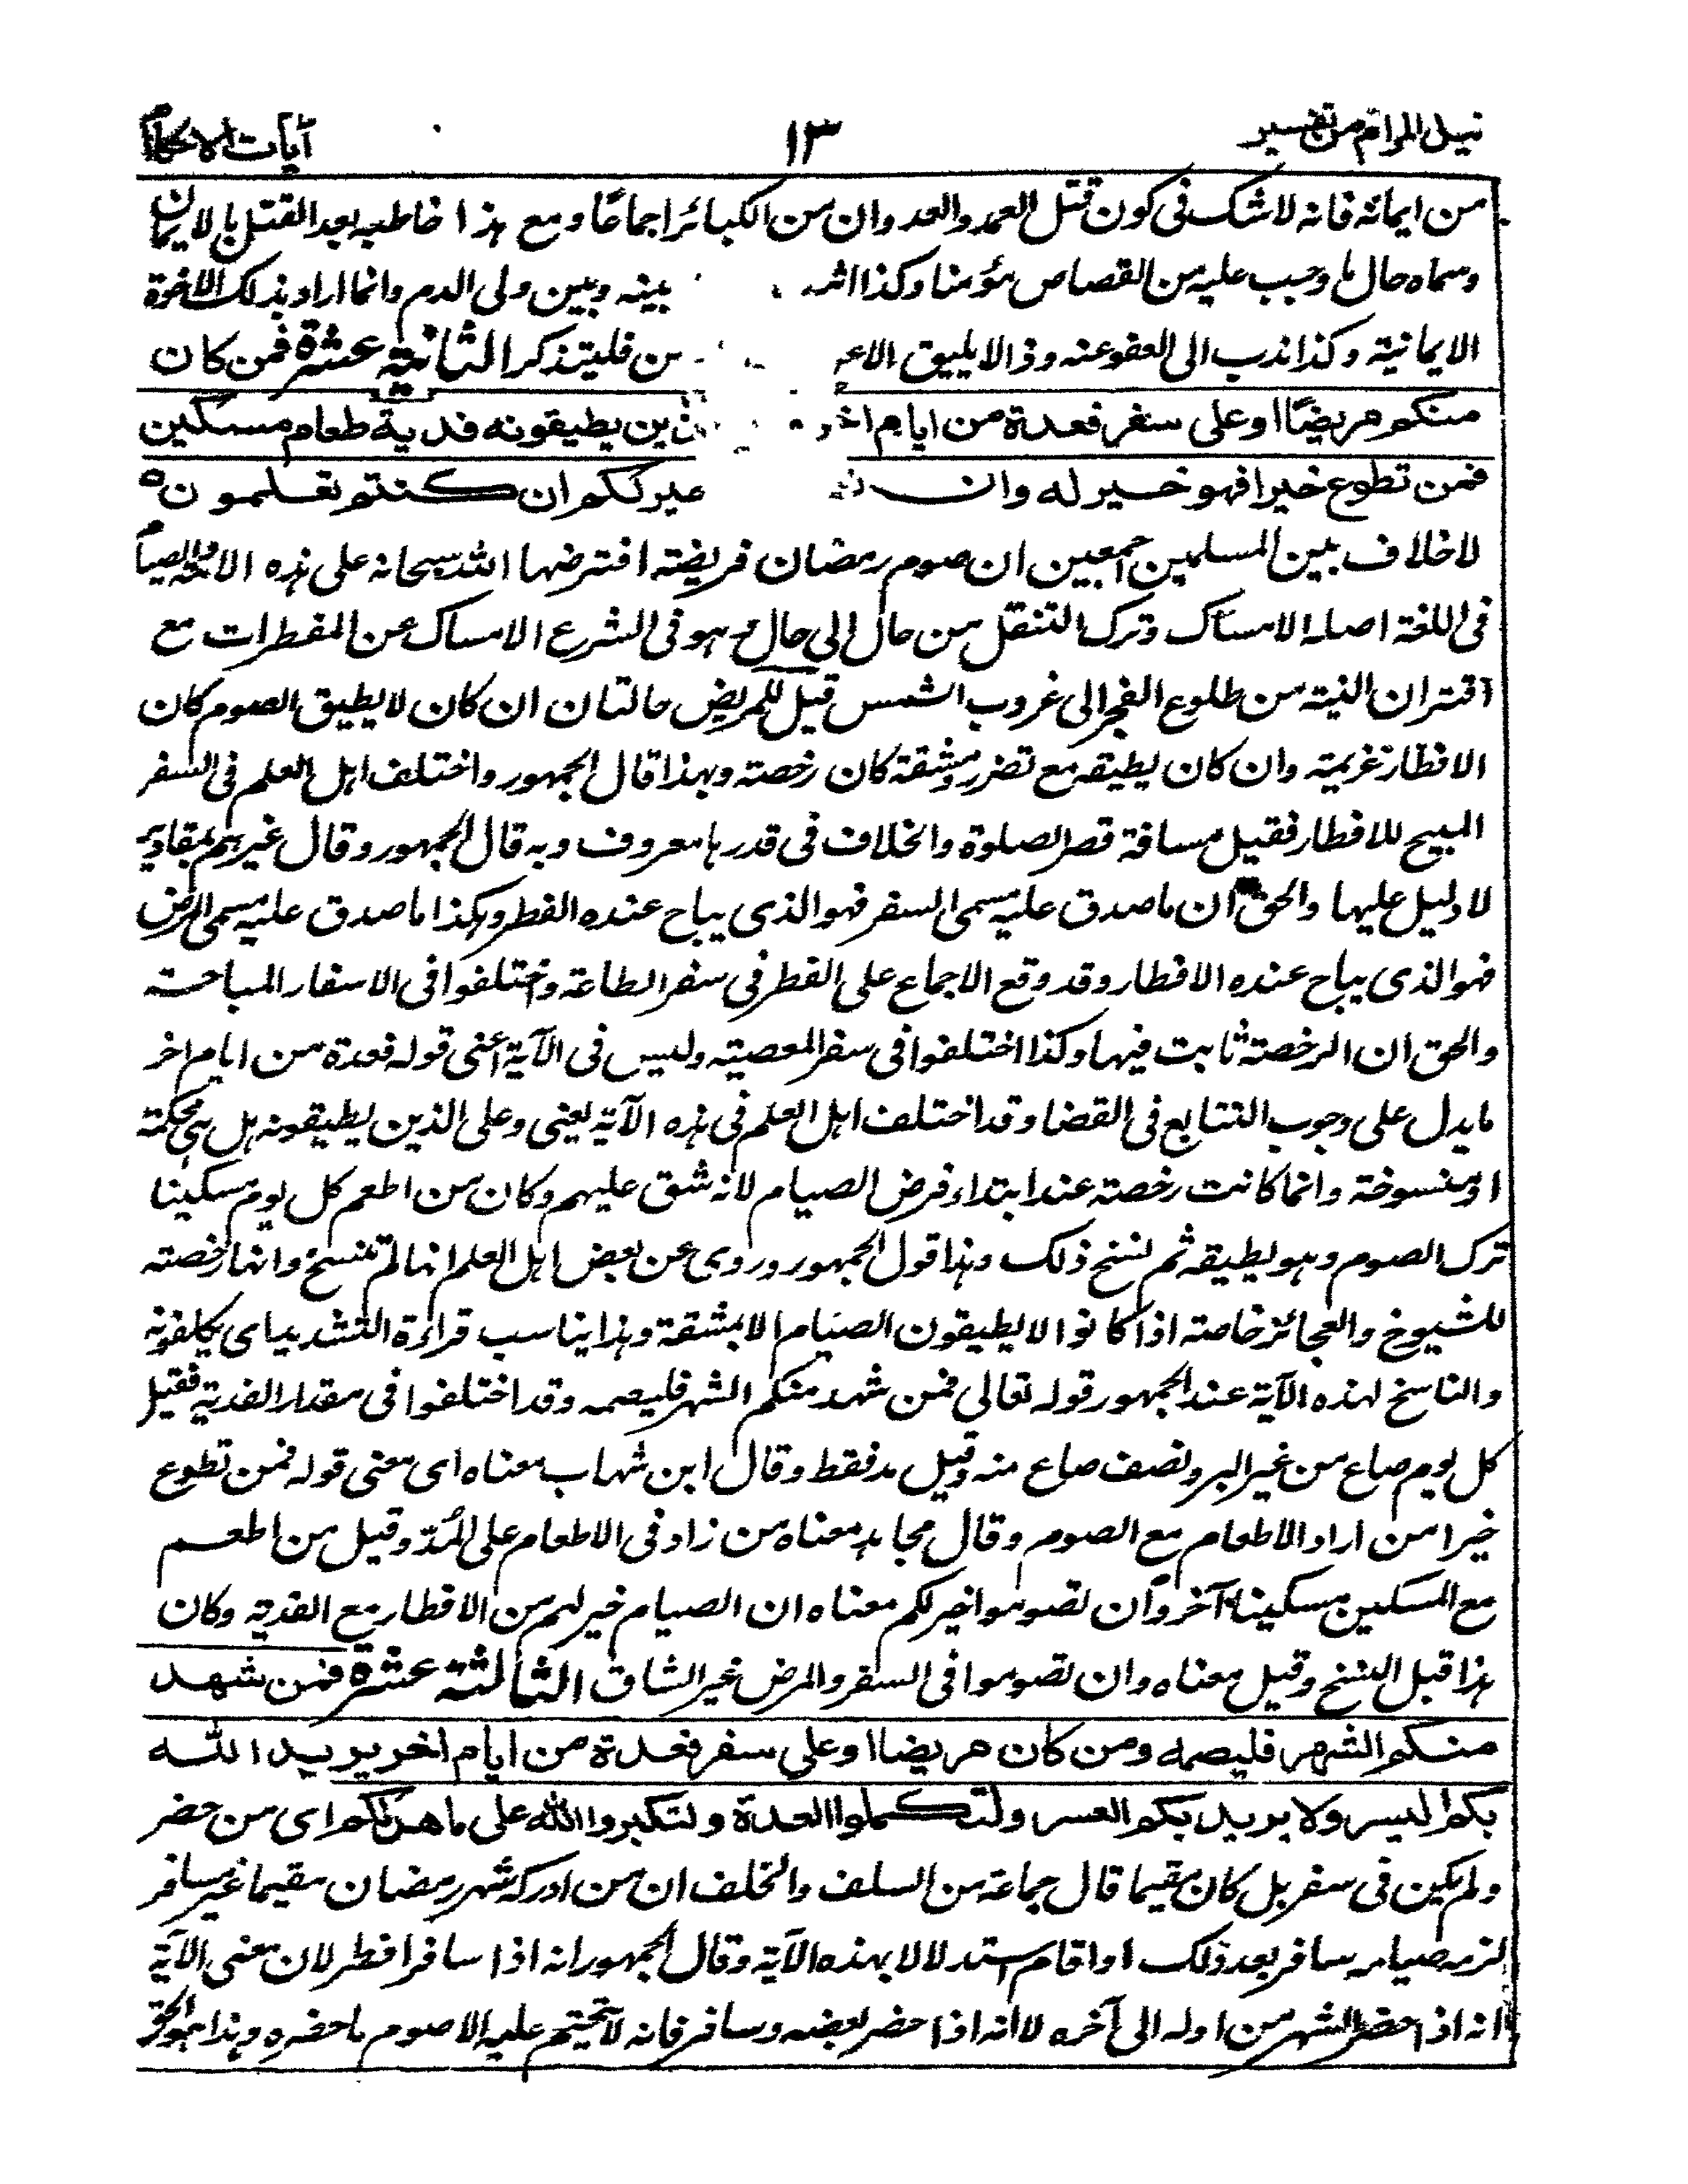 نيل المرام من تفسير
١٣
آيات الاحكام
من ايمانه فانه لاشك فى كون قتل العمد والعدوان من الكبائر اجماعًا ومع هذا خاطبه بعد القتل بالايمان
وسماه حال ما وجب عليه من القصاص مؤمنا وكذا بينه وبين ولى الدم وانما اراد بذلك الاخوة
الايمانية وكذا ندب الى العفو عنه وذا لا يليق فليتذكر الثانية عشرة فمن كان
منكم مريضًا او على سفر فعدة من ايام يطيقونه فدية طعام مسكين
فمن تطوع خيرا فهو خير له وان لكم ان كنتم تعلمون ه
لاخلاف بين المسلمين اجمعين ان صوم رمضان فريضة افترضها الله سبحانه على هذه الامة والصيام
فى اللغة اصله الامساك وترك التنقل من حال الى حال وهو فى الشرع الامساك عن المفطرات مع
اقتران النية من طلوع الفجر الى غروب الشمس قيل للمريض حالتان ان كان لا يطيق الصوم كان
الافطار عزيمة وان كان يطيقه مع تضرر ومشقة كان رخصة وبهذا قال الجمهور واختلف اهل العلم فى السفر
المبيح للافطار فقيل مسافة قصر الصلوة والخلاف فى قدرها معروف وبه قال الجمهور وقال غيرهم بمقادير
لا دليل عليها والحق ان ما صدق عليه مسمى السفر فهو الذى يباح عنده الفطر وهكذا ما صدق عليه مسمى المرض
فهو الذى يباح عنده الافطار وقد وقع الاجماع على الفطر فى سفر الطاعة واختلفوا فى الاسفار المباحة
والحق ان الرخصة ثابت فيها وكذا اختلفوا فى سفر المعصية وليس فى الآية اعنى قوله فعدة من ايام اخر
ما يدل على وجوب التتابع فى القضا وقد اختلف اهل العلم فى هذه الآية يعنى وعلى الذين يطيقونه هل هى محكمة
او منسوخة وانما كانت رخصة عند ابتداء فرض الصيام لانه شق عليهم وكان من اطعم كل يوم مسكينا
ترك الصوم وهو يطيقه ثم نسخ ذلك وهذا قول الجمهور وروى عن بعض اهل العلم انها لم تنسخ وانها رخصة
للشيوخ والعجائز خاصة اذا كانوا لا يطيقون الصيام الا بمشقة وهذا يناسب قراءة التشديد اى يكلفونه
والناسخ لهذه الآية عند الجمهور قوله تعالى فمن شهد منكم الشهر فليصمه وقد اختلفوا فى مقدار الفدية فقيل
كل يوم صاع من غير البر ونصف صاع منه وقيل مد فقط وقال ابن شهاب معناه اى معنى قوله فمن تطوع
خيرا من اراد الاطعام مع الصوم وقال مجاهد معناه من زاد فى الاطعام على المُدّ وقيل من اطعم
مع المسكين مسكينا آخر وان تصوموا خير لكم معناه ان الصيام خير لهم من الافطار مع الفدية وكان
هذا قبل النسخ وقيل معناه وان تصوموا فى السفر والمرض غير الشاق الثالثة عشرة فمن شهد
منكم الشهر فليصمه ومن كان مريضا او على سفر فعدة من ايام اخر يريد الله
بكم اليسر ولا يريد بكم العسر ولتكملوا العدة ولتكبروا الله على ما هداكم اى من حضر
ولم يكن فى سفر بل كان مقيما قال جماعة من السلف والخلف ان من ادركه شهر رمضان مقيما غير مسافر
لزمه صيامه سافر بعد ذلك او اقام استدلالا بهذه الآية وقال الجمهور انه اذا سافر افطر لان معنى الآية
انه اذا حضر الشهر من اوله الى آخره لا انه اذا حضر بعضه وسافر فانه لا يتحتم عليه الا صوم ما حضره وهذا هو الحق